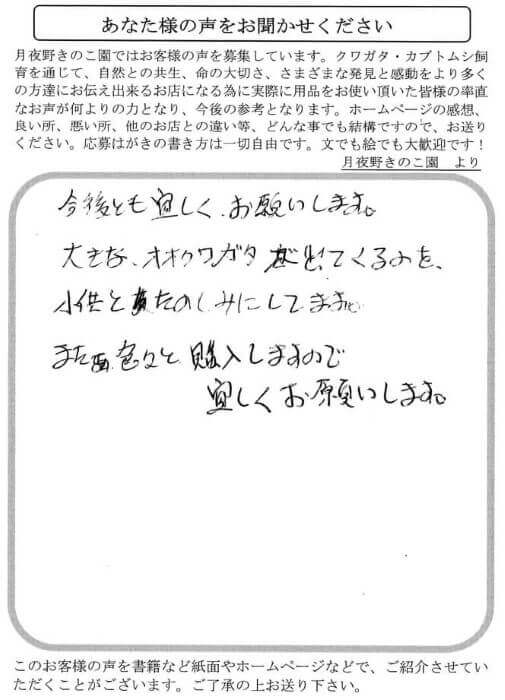 あなた様の声をお聞かせください
月夜野きのこ園ではお客様の声を募集しています。クワガタ・カブトムシ飼
育を通じて、自然との共生、命の大切さ、さまざまな発見と感動をより多く
の方達にお伝え出来るお店になる為に実際に用品をお使い頂いた皆様の率直
なお声が何よりの力となり、今後の参考となります。ホームページの感想、
良い所、悪い所、他のお店との違い等、どんな事でも結構ですので、お送り
ください。応募はがきの書き方は一切自由です。文でも絵でも大歓迎です！
月夜野きのこ園　より
今後とも宜しく、お願いします。
大きな、オオクワガタがでてくるのを、
小供とたのしみにしてます。
また色々と購入しますので
宜しくお願いします。
このお客様の声を書籍など紙面やホームページなどで、ご紹介させてい
ただくことがございます。ご了承の上お送り下さい。